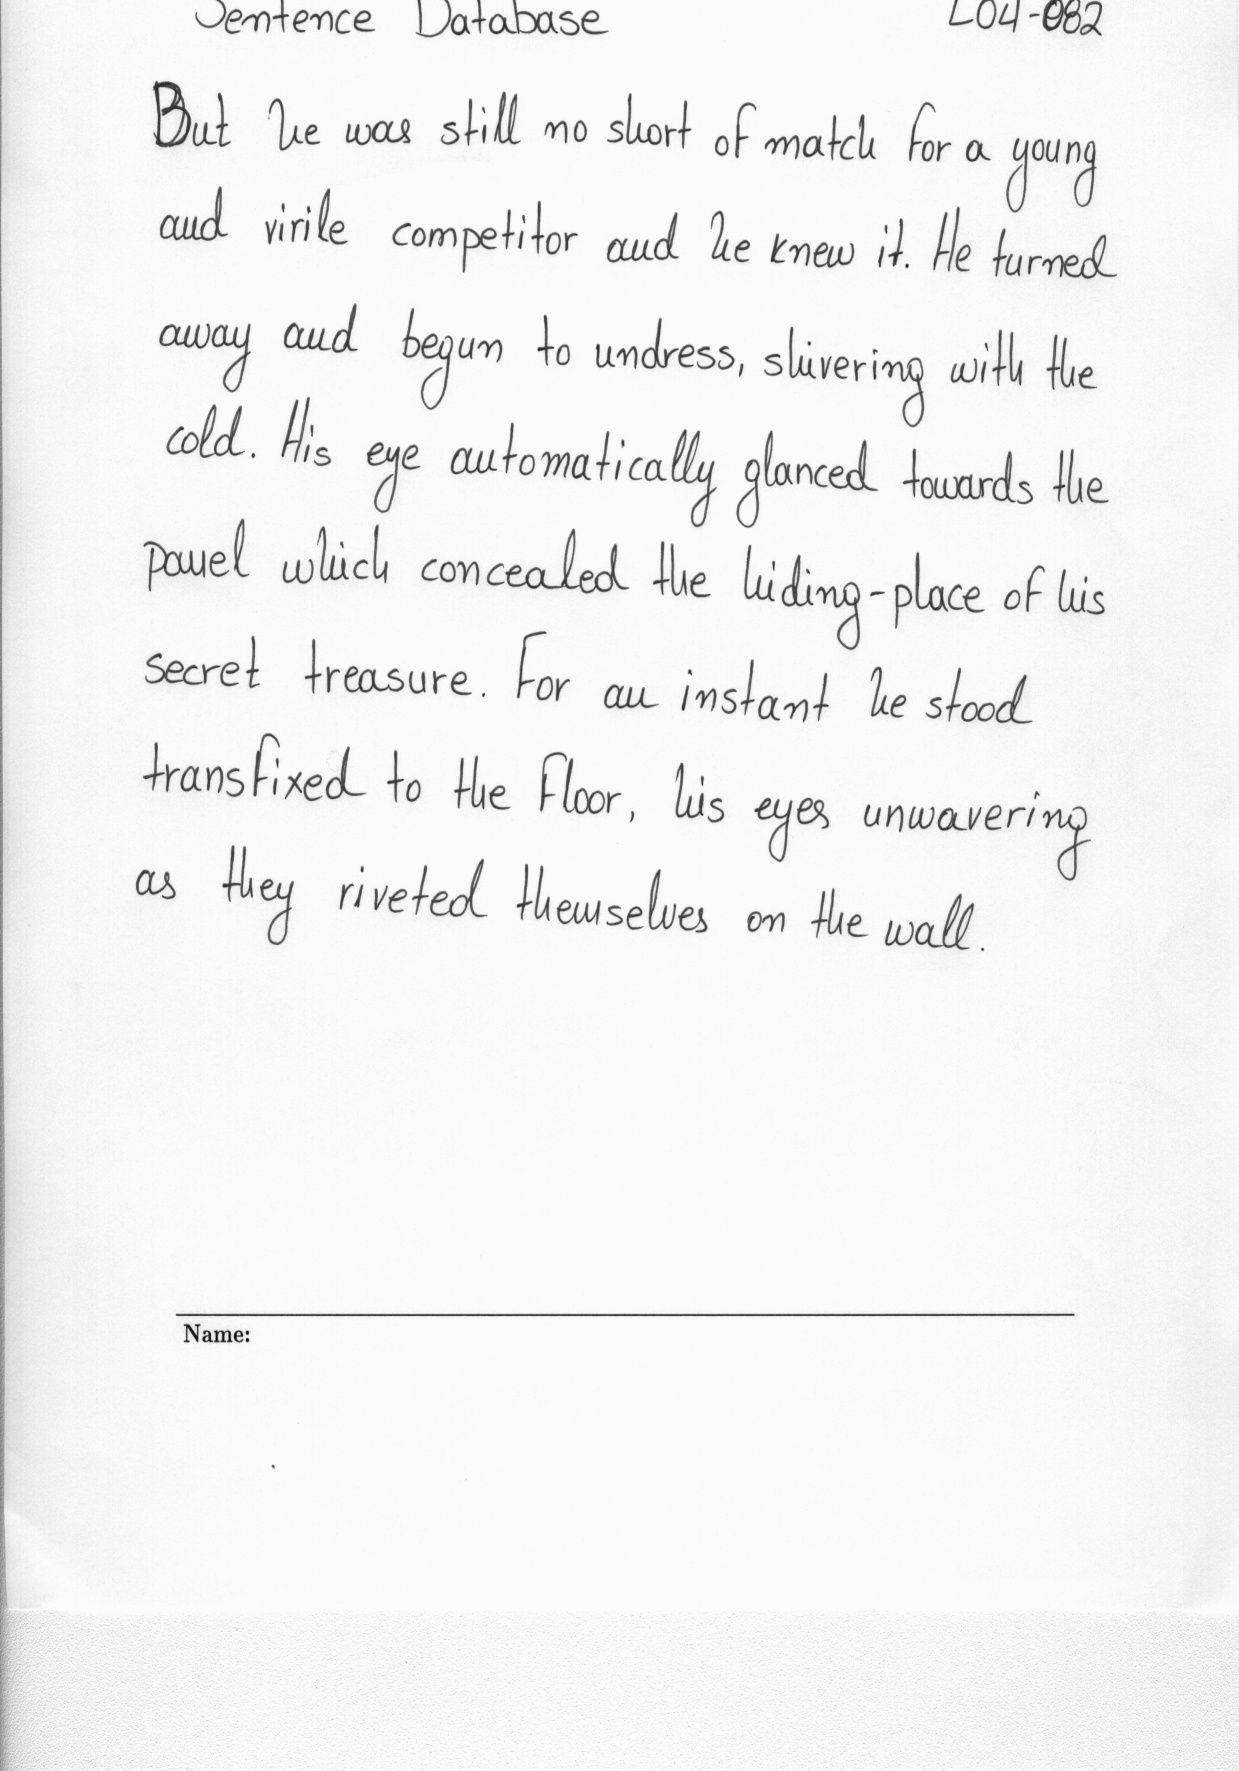 Sentence Database L04-082
But he was still no short of match for a young
and virile competitor and he knew it. He turned
away and begun to undress, shivering with the
cold. His eye automatically glanced towards the
panel which concealed the hiding-place of his
secret treasure. For an instant he stood
transfixed to the floor, his eyes unwavering
as they riveted themselves on the wall.
Name: